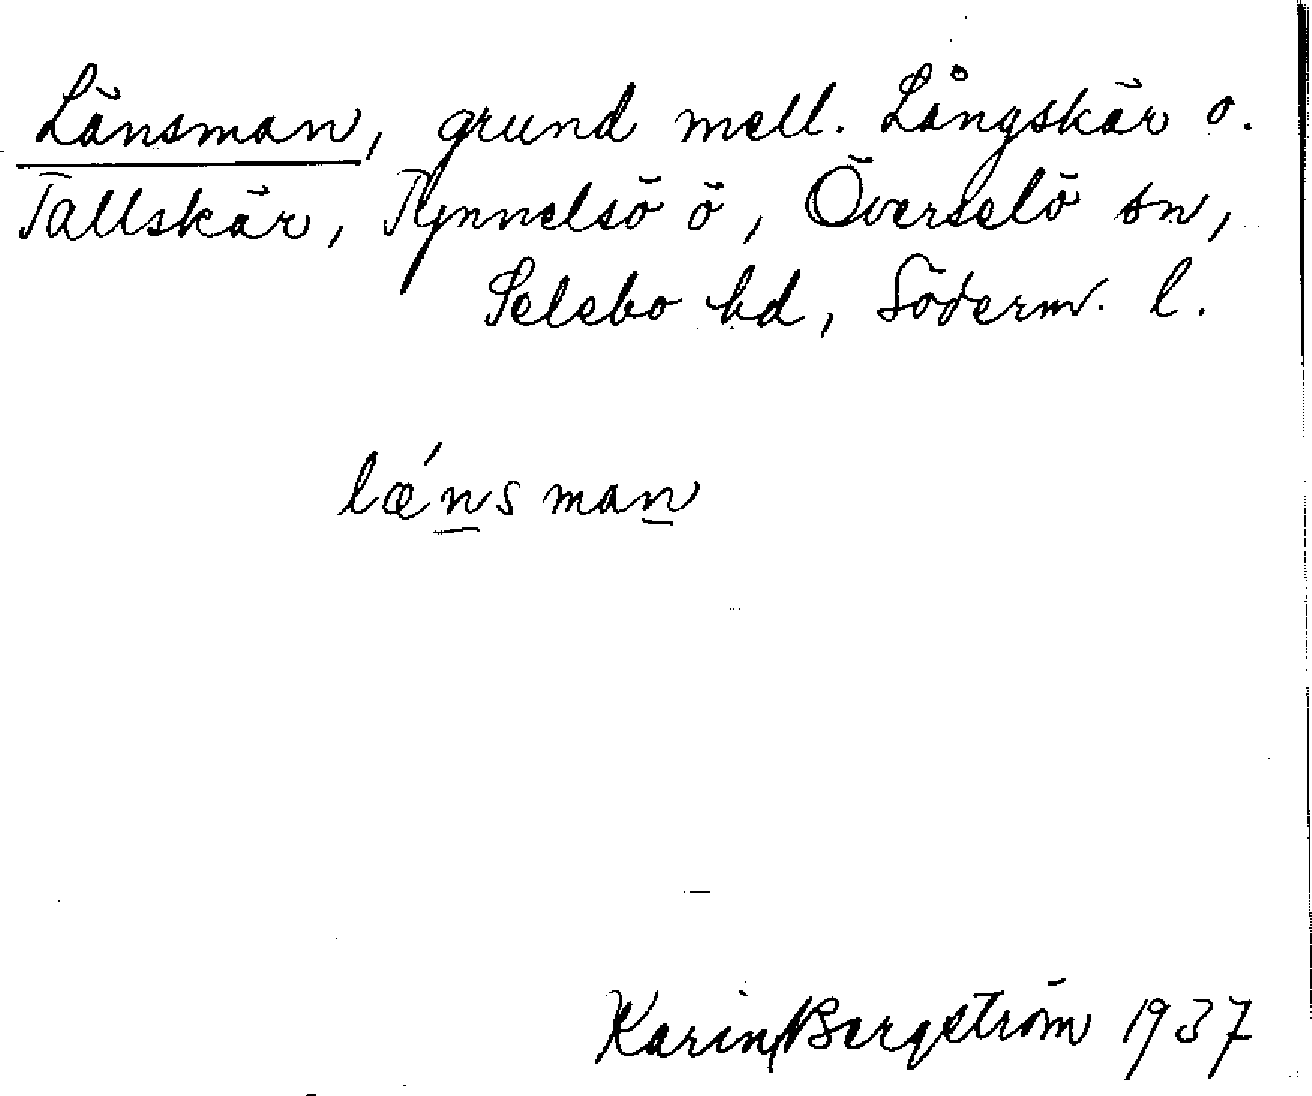 Länsman, grund mell. Långskär o.
Tallskär, Tynnelsö ö, Överselö sn,
Selebo hd, Söderm. l.
lǽns man
Karin Bergström 1937